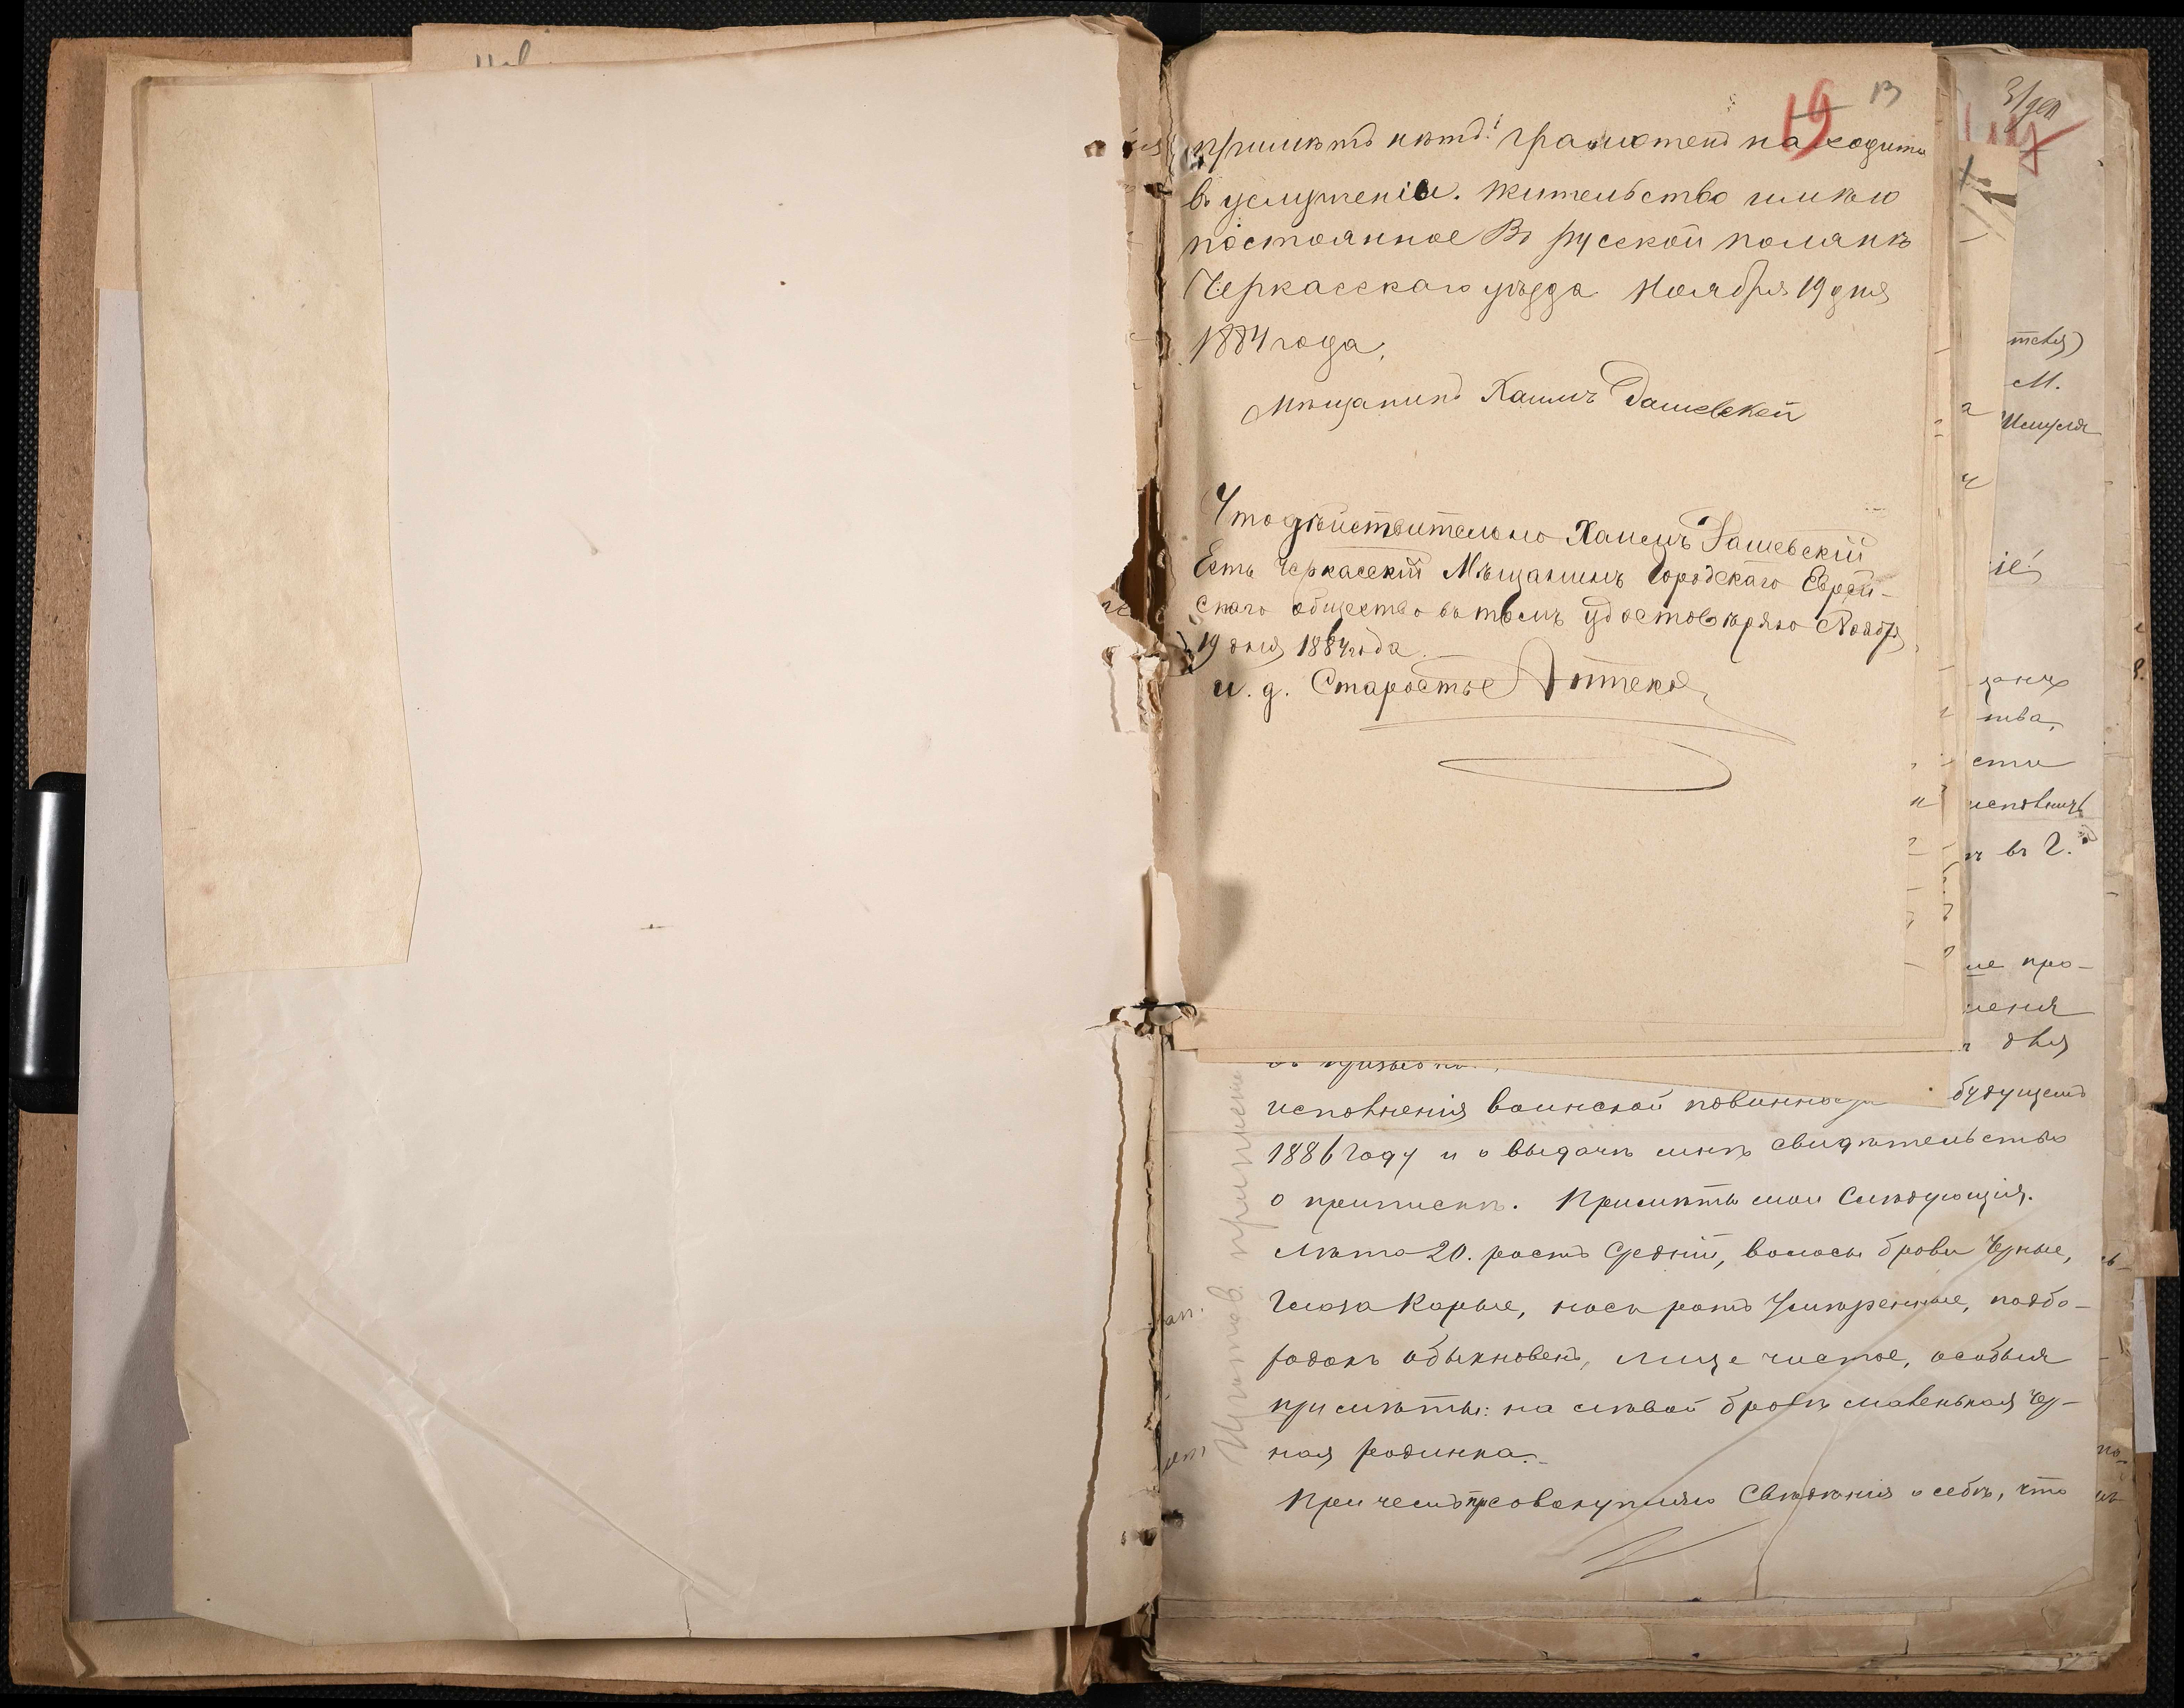 19 13
примѣтъ нѣтъ. грамотенъ находится
въ услуженіи. жительство имѣю
постоянное въ русской полянѣ
Черкасскаго уѣзда Ноября 19 дня
1884 года.
Мѣщанинъ Хаимъ Дашевскій
Что дѣйствительно Хаимъ Дашевскій
Есть Черкасскій Мѣщанинъ Городскаго Еврей-
скаго общества въ томъ удостовѣряю Ноября
19 дня 1884 года.
и. д. Старосты Аптекарь
исполненія воинской повинности будущемъ
1886 году и о выдачѣ мнѣ свидѣтельства
о припискѣ. Примѣты мои Слѣдующія.
Лѣта 20. ростъ Средній, волосы брови Черные,
Глаза Карые, носъ ротъ Умѣренные, подбо-
родокъ обыкновенъ, лице чистое, особыя
примѣты: на лѣвой бровѣ маленькая чер-
ная родинка.
При чемъ присовокупляю Свѣдѣнія о себѣ, что